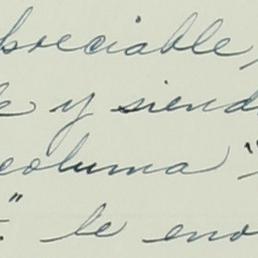 preciable,
e y siend
columna "
" le eno